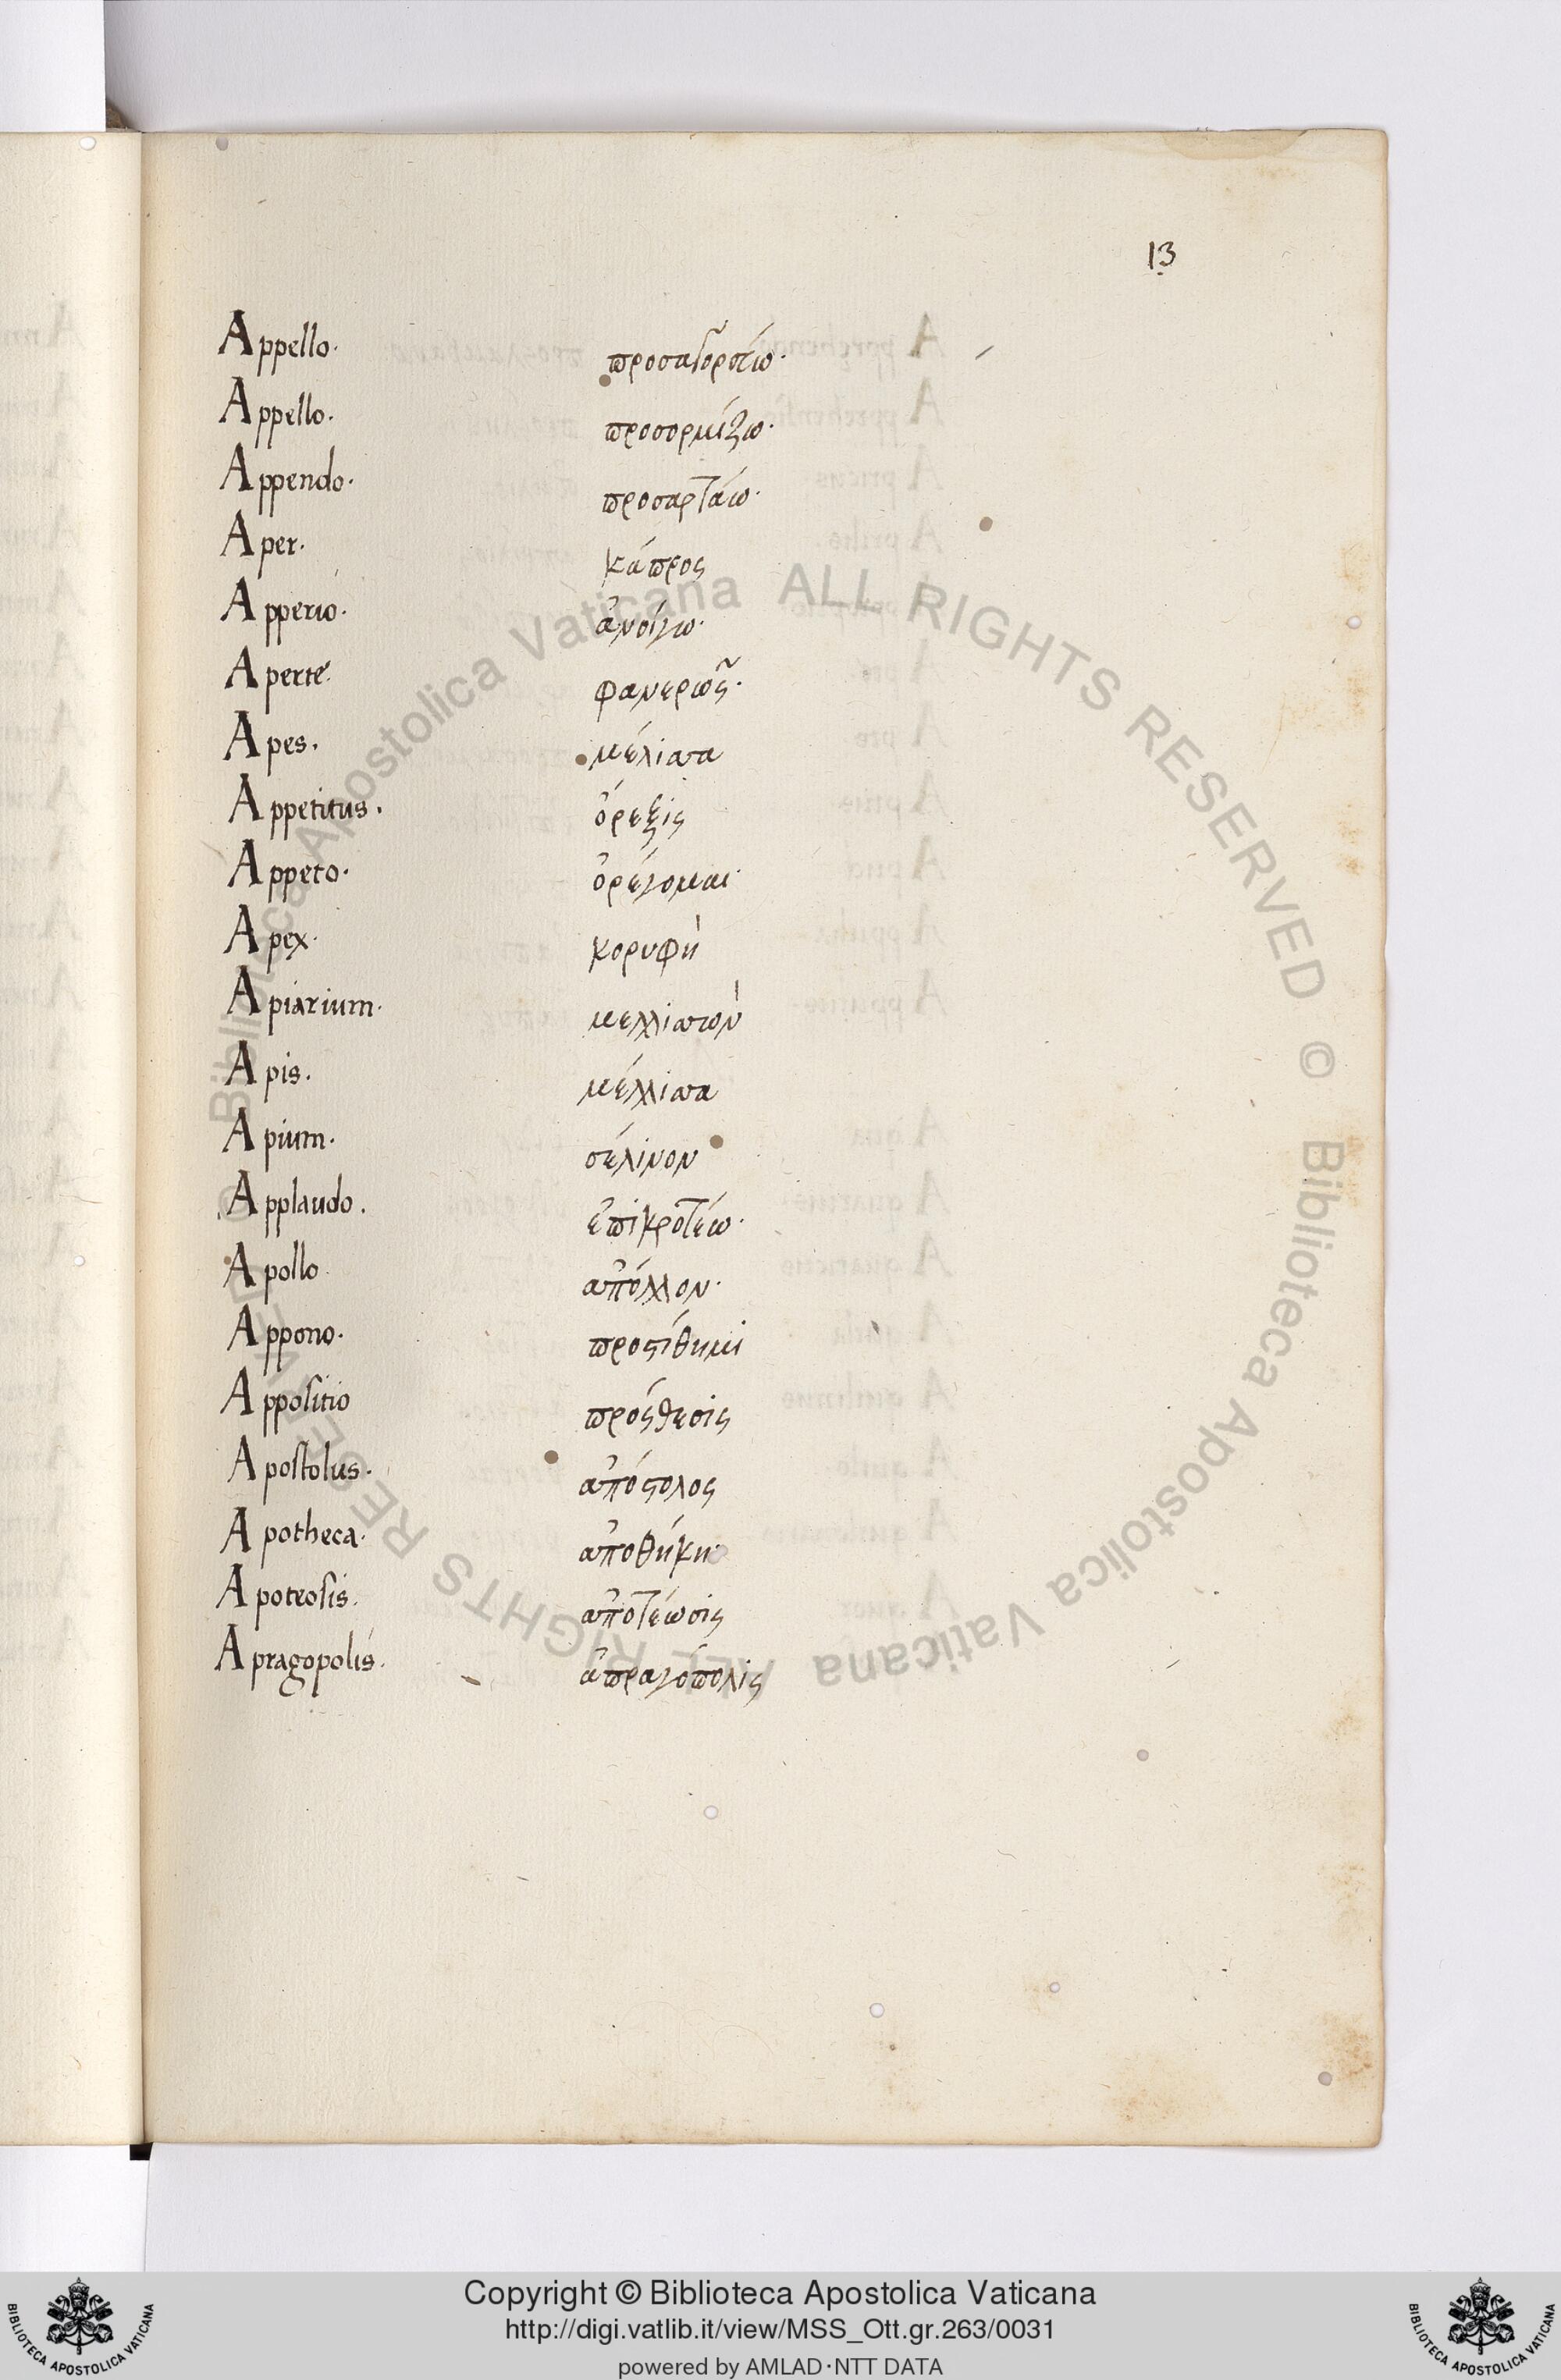 13
Appello· προσαγορεύω·
Appello. προσορμίζω·
Appendo· προσαρτάω·
Aper. κάπρος
Apperio· ἀνοίγω·
Aperte. φανερῶς·
Apes. μέλισσα
Appetitus. ὄρεξις
Appeto· ὀρέγομαι·
Apex· κορυφὴ
Apiarium· μελλισσὸν
Apis. μέλλισσα
Apium· σέλινον
Applaudo. ἐπικροτέω·
Apollo. ἀπόλλον·
Appono· προςίθημι
Appositio πρόςθεσις
Apostolus· ἀπόστολος
Apotheca· ἀποθήκη·
Apoteosis. ἀποτέωσις
Apragopolis. ἀπραγόπολις
Biblioteca Apostolica Vaticana ALL RIGHTS RESERVED © Biblioteca Apostolica Vaticana ALL RIGHTS RESERVED ©
Copyright © Biblioteca Apostolica Vaticana
http://digi.vatlib.it/view/MSS_Ott.gr.263/0031
powered by AMLAD·NTT DATA
BIBLIOTECA APOSTOLICA VATICANA
BIBLIOTECA APOSTOLICA VATICANA